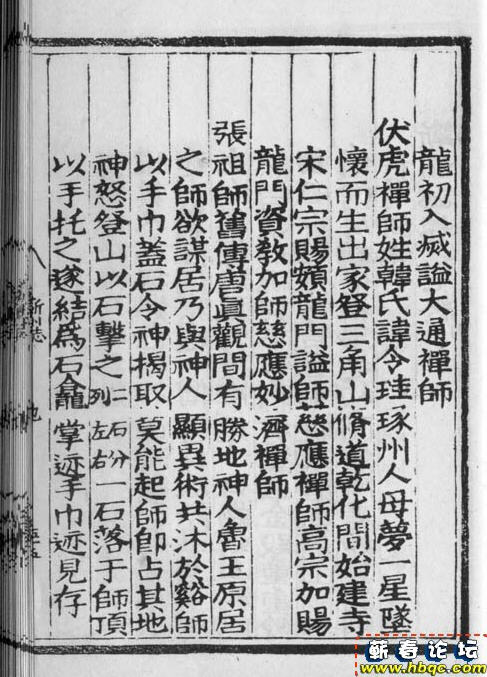 龍初入滅謚大通禪師
伏虎禪師姓韓氏諱令珪琢州人母夢一星墜
懷而生出家登三角山脩道乾化間始建寺
宋仁宗賜額龍門謚師慈應禪師高宗加賜
龍門資教加師慈應妙濟禪師
張祖師舊傳唐眞觀間有勝地神人魯王原居
之師欲謀居乃與神人顯異術共沐於谿師
以手巾蓋石令神揭取莫能起師卽占其地
神怒登山以石擊之二石分列左右一石落于師頂
以手托之遂結爲石龕掌迹手巾迹見存
蕲春论坛
www.hbqc.com